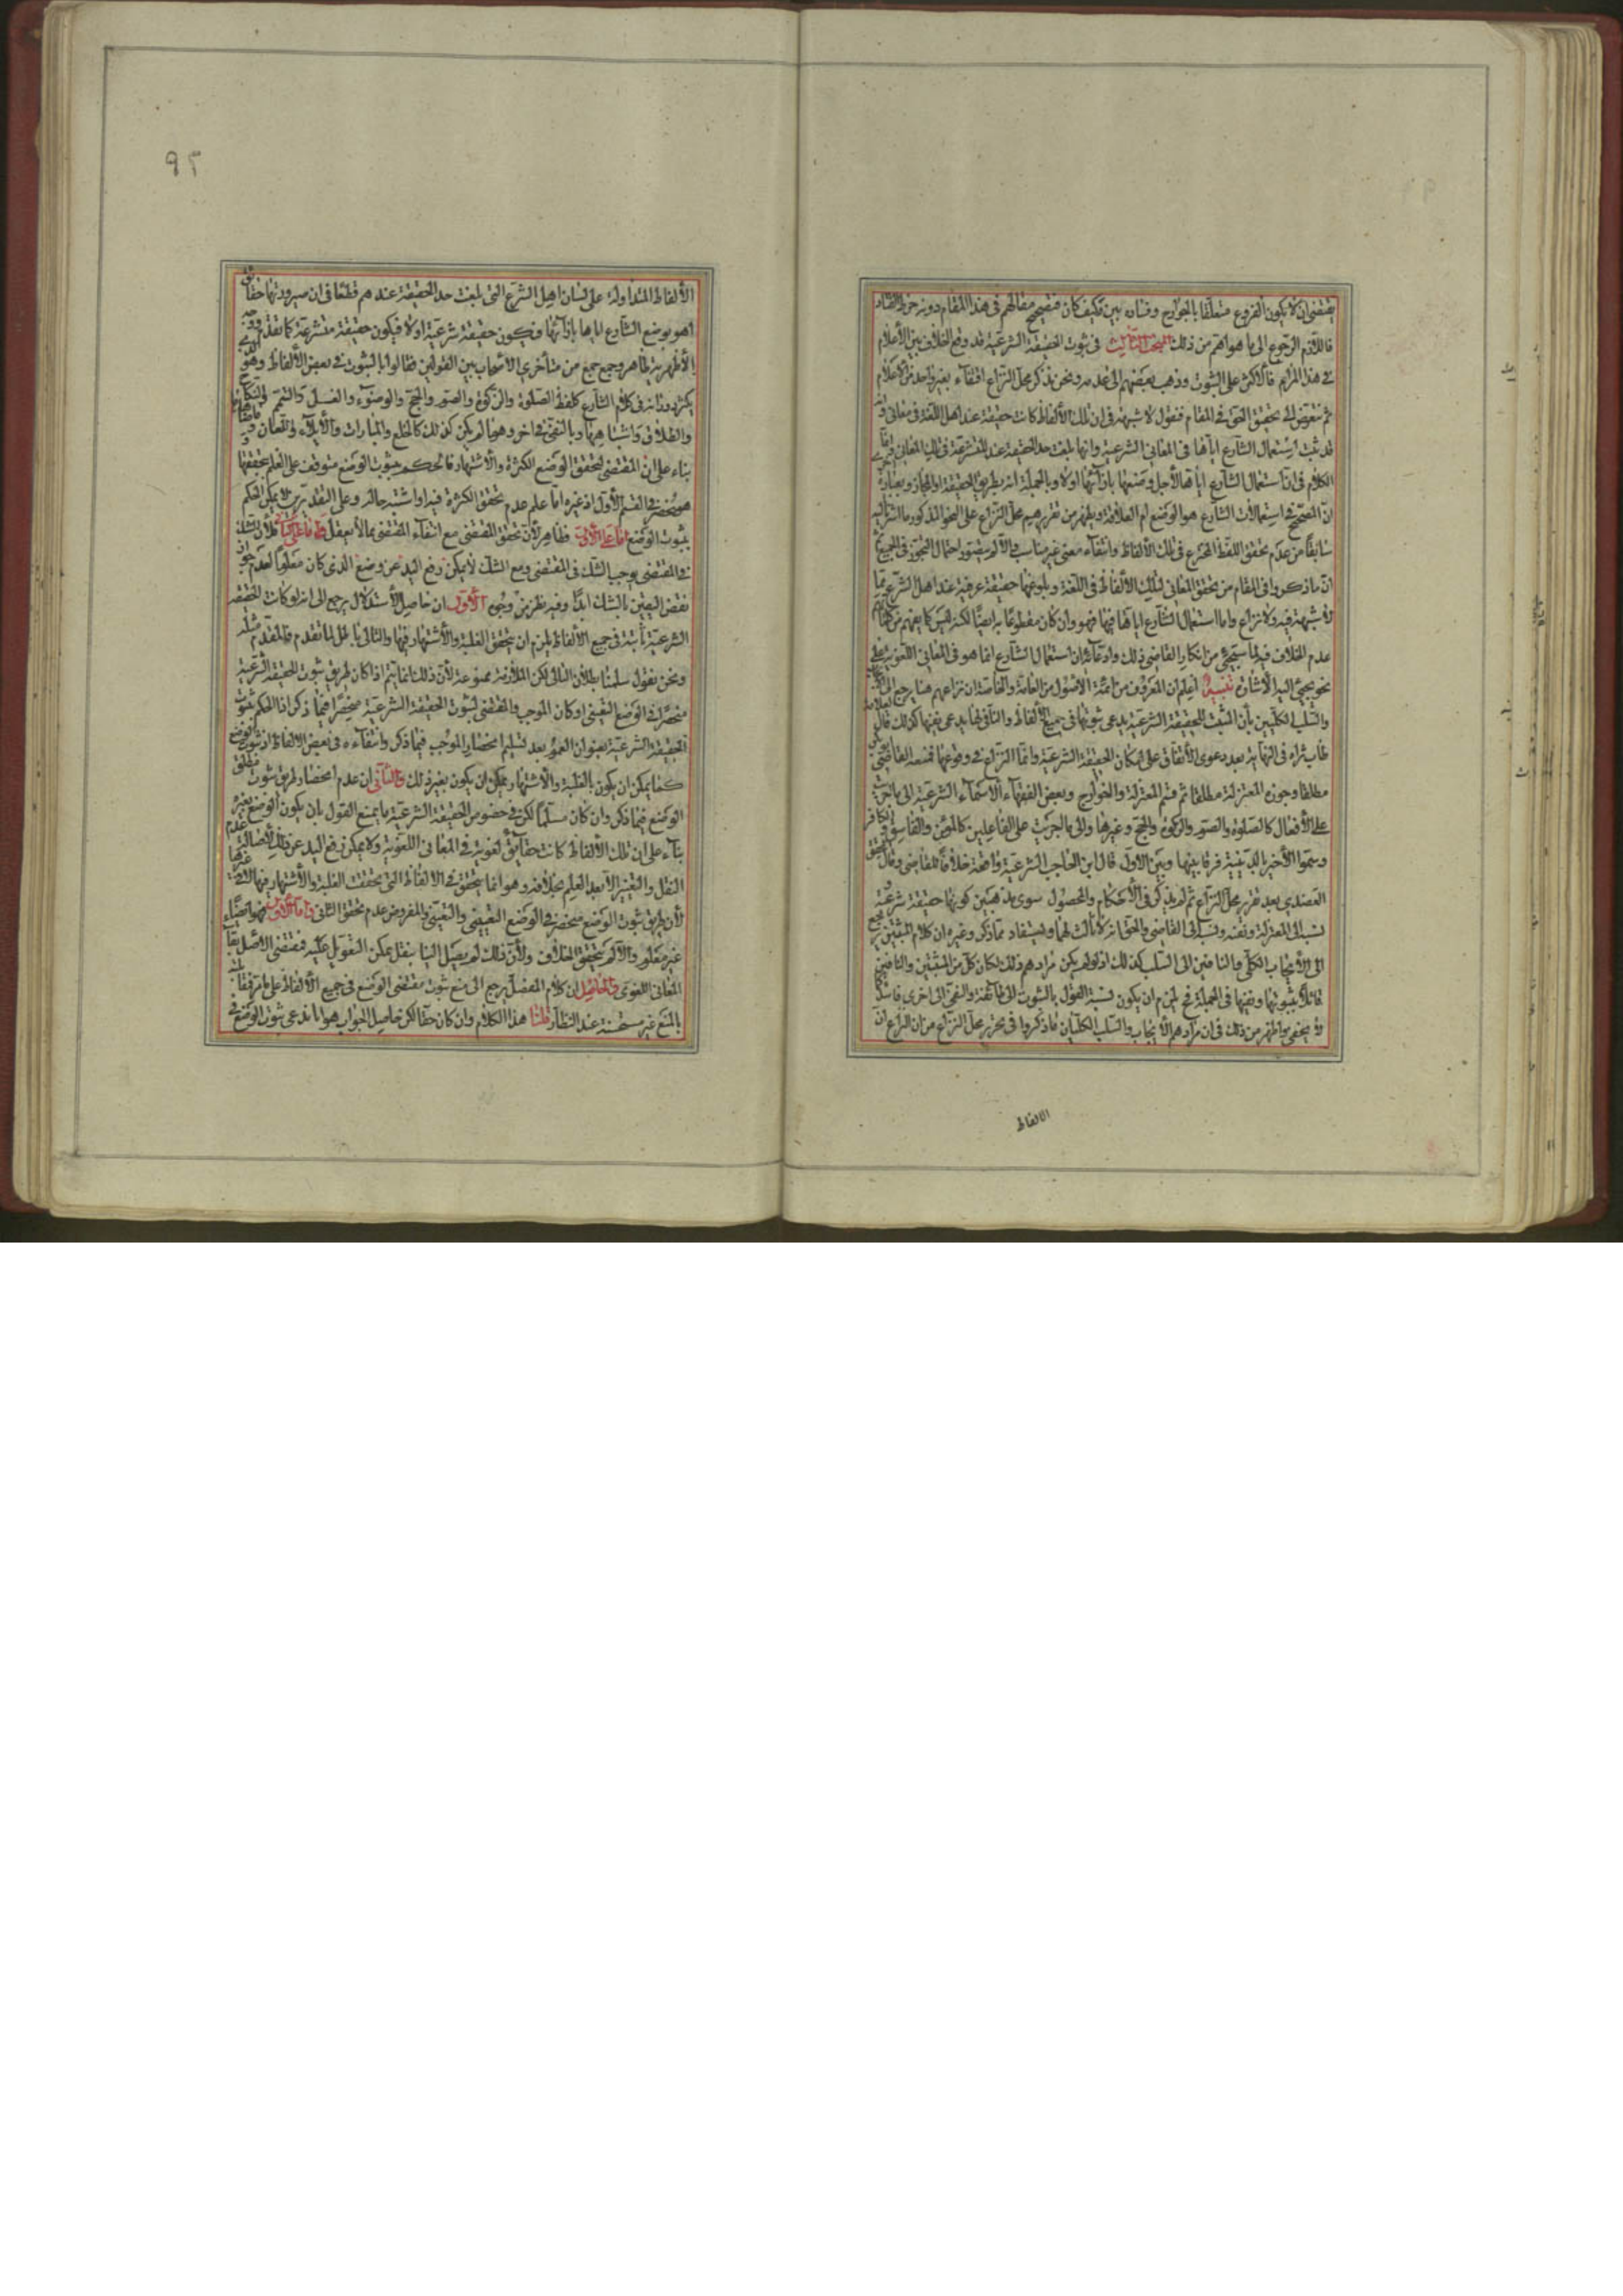 يقتضى ان لا يكون الفروع متعلقا بالجوارح وفساده بين وكيف كان فتصحيح مقالهم فى هذا المقام دونه خرط القتاد
فاللازم الرجوع الى ما هو اهم من ذلك المبحث الثالث فى ثبوت الحقيقة الشرعية قد وقع الخلاف بين الأعلام
فى هذا المرام فالاكثر على الثبوت وذهب بعضهم الى عدمه ونحن نذكر محل النزاع اقتفاء بغير واحد من الاعلام
ثم نتعرض الى تحقيق الحق فى المقام فنقول لا شبهة فى ان تلك الألفاظ كانت حقيقة عند اهل اللغة فى معانى وانه
قد ثبت استعمال الشارع اياها فى المعانى الشرعية وانها بلغت حد الحقيقة عند المتشرعة فى تلك المعانى انما
الكلام فى ان استعمال الشارع اياها لأجل وضعها بازائها اولا وبالجملة انه بطريق الحقيقة او المجاز وبعبارة
ان المصحح فى استعمالات الشارع هو الوضع ام العلاقة ويظهر من تقريرهم محل النزاع على النحو المذكور ما اشرنا اليه
سابقا من عدم تحقق اللفظ المخترع فى تلك الألفاظ وانتفاء معنى غير مناسب والا لم يتصور احتمال التجوز فى الجميع ثم
ان ما ذكروا فى المقام من تحقق المعانى لتلك الألفاظ فى اللغة وبلوغها حقيقة عرفية عند اهل الشرع مما
لا شبهة فيه ولا نزاع واما استعمال الشارع اياها فيها فهو وان كان مقطوعا به ايضا لكنه ليس كما يفهم من كلماتهم
عدم الخلاف فيه لما سيجئ من انكار القاضى ذلك وادعائه ان استعمال الشارع انما هو فى المعانى اللغوية على
نحو يجئ اليه الاشارة تنبيه اعلم ان المعروف من ائمة الاصول من العامة والخاصة ان نزاعهم هنا يرجع الى الايجاب
والسلب الكليين بأن المثبت للحقيقة الشرعية يدعى ثبوتها فى جميع الألفاظ والنافى لها يدعى نفيها كذلك قال العلامة
طاب ثراه فى النهاية بعد دعوى الاتفاق على امكان الحقيقة الشرعية وانما النزاع فى وقوعها فمنعه القاضى
مطلقا وجوزه المعتزلة مطلقا ثم قسم المعتزلة والخوارج وبعض الفقهاء الأسماء الشرعية الى ما اجريت
على الأفعال كالصلوة والصوم والزكوة والحج وغيرها والى ما اجريت على الفاعلين كالمؤمن والفاسق والكافر
وسموا الأخير بالدينية فرقا بينها وبين الاول قال ابن الحاجب الشرعية واقعة خلافا للقاضى وقال المحقق
العضدى بعد تقرير محل النزاع ثم لم يذكر فى الأحكام والمحصول سوى مذهبين كونها حقيقة شرعية
نسبه الى المعتزلة ونفيه ونسبه الى القاضى والحق انه لا ثالث لهما ويستفاد مما ذكر وغيره ان كلام المثبتين يرجع
الى الأيجاب الكلى والنافين الى السلب كذلك اذ لو لم يكن مرادهم ذلك لكان كل من المثبتين والنافين
قائلا بثبوتها ونفيها فى الجملة فح يلزم ان يكون نسبة القول بالثبوت الى طائفة والنفى الى اخرى فاسدا كما
لا يخفى واظهر من ذلك فى ان مرادهم الأيجاب والسلب الكليان ما ذكروا فى تحرير محل النزاع من ان النزاع ان
الالفاظ
٩٢
الألفاظ المتداولة على لسان اهل الشرع التى بلغت حد الحقيقة عندهم قطعا فى ان صيرورتها حقائق
أهو بوضع الشارع اياها بازائها فيكون حقيقة شرعية او لا فيكون حقيقة متشرعة كما تقدم ووجه
الأظهرية ظاهر وجمع جمع من متأخرى الأصحاب بين القولين فقالوا بالثبوت فى بعض الألفاظ وهو الذى
يكثر دورانه فى كلام الشارع كلفظ الصلوة والزكوة والصوم والحج والوضوء والغسل والتيمم والنكاح
والطلاق واشباهها وبالنفى فى اخر وهو ما لم يكن كذلك كالخلع والمبارات والأيلاء واللعان وما ضاهاها
بناء على ان المقتضى لتحقق الوضع الكثرة والأشتهار فالحكم بثبوت الوضع متوقف على العلم بتحققها
هو منحصر فى القسم الأول اذ غيره اما علم عدم تحقق الكثرة فيه او اشتبه حاله وعلى التقديرين لا يمكن الحكم
بثبوت الوضع اما على الأول فظاهر لأن تحقق المقتضى مع انتفاء المقتضى مما لا يعقل واما على الثانى فلأن الشك
فى المقتضى يوجب الشك فى المقتضى ومع الشك لا يمكن رفع اليد عن وضع الذى كان معلوما لعدم جواز
نقض اليقين بالشك ابدا وفيه نظر من وجوه الأول ان حاصل الأستدلال يرجع الى انه لو كانت الحقيقة
الشرعية ثابتة فى جميع الألفاظ يلزم ان يتحقق الغلبة والأشتهار فيها والتالى باطل لما تقدم فالمقدم مثله
ونحن نقول سلمنا بطلان التالى لكن الملازمة ممنوعة لأن ذلك انما يتم اذا كان طريق ثبوت الحقيقة الشرعية
منحصرا فى الوضع التعينى او كان الموجب والمقتضى لثبوت الحقيقة الشرعية منحصرا فيما ذكر انما الحكم بثبوت
الحقيقة الشرعية بعنوان العموم بعد تسليم انحصار الموجب فيما ذكر وانتفاءه فى بعض الالفاظ اذ ثبوت الوضع
كما يمكن ان يكون بالغلبة والأشتهار يمكن ان يكون بغير ذلك والثانى ان عدم انحصار طريق ثبوت مطلق
الوضع فيما ذكر وان كان مسلما لكن فى خصوص الحقيقة الشرعية ما يمنع القول بان يكون الوضع بغيره
بناء على ان تلك الألفاظ كانت حقائق لغوية فى المعانى اللغوية ولا يمكن رفع اليد عن ذلك لأصالة عدم
النقل والتغيير الا بعد العلم بخلافه وهو انما يتحقق فى الالفاظ التى تحققت الغلبة والأشتهار فيها لا غيرها
لأن طريق ثبوت الوضع منحصر فى الوضع التعيينى والتعينى والمفروض عدم تحقق الثانى واما الاول فهو ايضا
غير معلوم والا لم يتحقق الخلاف ولأن ذلك لم يصل الينا بنقل يمكن التعويل عليه فمقتضى الاصل بقاء
المعانى اللغوى والحاصل ان كلام المفصل يرجع الى منع ثبوت مقتضى الوضع فى جميع الألفاظ على ما مر
بالمنع غير مستحسنة عند النظار قلنا هذا الكلام وان كان حقا لكن حاصل الجواب هو انا ندعى ثبوت الوضع فى